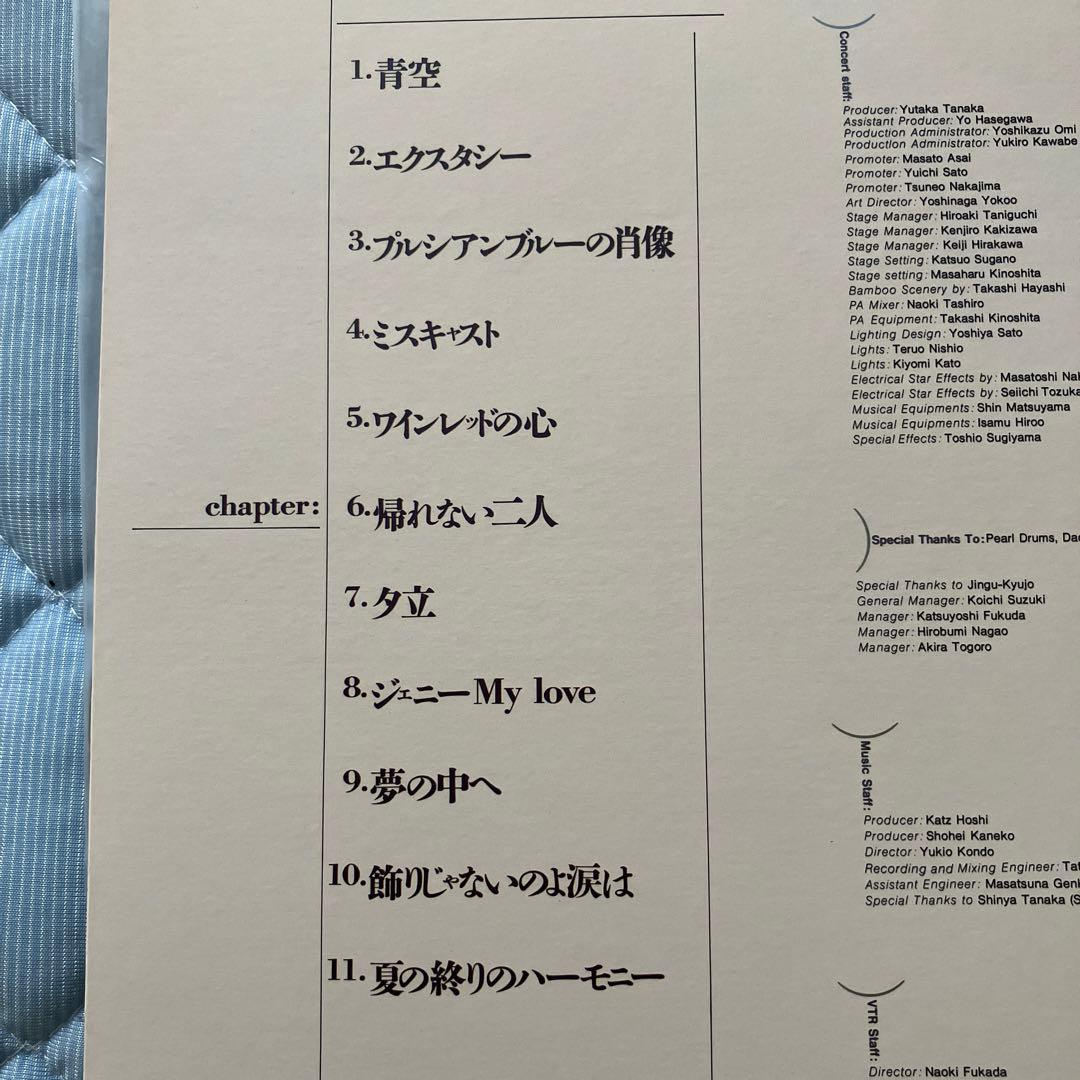 1.青空
2.エクスタシー
3.プルシアンブルーの肖像
4.ミスキャスト
5.ワインレッドの心
chapter:
6.帰れない二人
7.夕立
8.ジェニーMy love
9.夢の中へ
10.飾りじゃないのよ涙は
11.夏の終りのハーモニー
Concert staff:
Producer: Yutaka Tanaka
Assistant Producer: Yo Hasegawa
Production Administrator: Yoshikazu Omi
Production Administrator: Yukiro Kawabe
Promoter: Masato Asai
Promoter: Yuichi Sato
Promoter: Tsuneo Nakajima
Art Director: Yoshinaga Yokoo
Stage Manager: Hiroaki Taniguchi
Stage Manager: Kenjiro Kakizawa
Stage Manager: Keiji Hirakawa
Stage Setting: Katsuo Sugano
Stage setting: Masaharu Kinoshita
Bamboo Scenery by: Takashi Hayashi
PA Mixer: Naoki Tashiro
PA Equipment: Takashi Kinoshita
Lighting Design: Yoshiya Sato
Lights: Teruo Nishio
Lights: Kiyomi Kato
Electrical Star Effects by: Masatoshi
Electrical Star Effects by: Seiichi Tozuka
Musical Equipments: Shin Matsuyama
Musical Equipments: Isamu Hiroo
Special Effects: Toshio Sugiyama
Special Thanks To: Pearl Drums,
Special Thanks to Jingu-Kyujo
General Manager: Koichi Suzuki
Manager: Katsuyoshi Fukuda
Manager: Hirobumi Nagao
Manager: Akira Togoro
Music Staff:
Producer: Katz Hoshi
Producer: Shohei Kaneko
Director: Yukio Kondo
Recording and Mixing Engineer:
Assistant Engineer: Masatsuna
Special Thanks to Shinya Tanaka
VTR Staff:
Director: Naoki Fukada